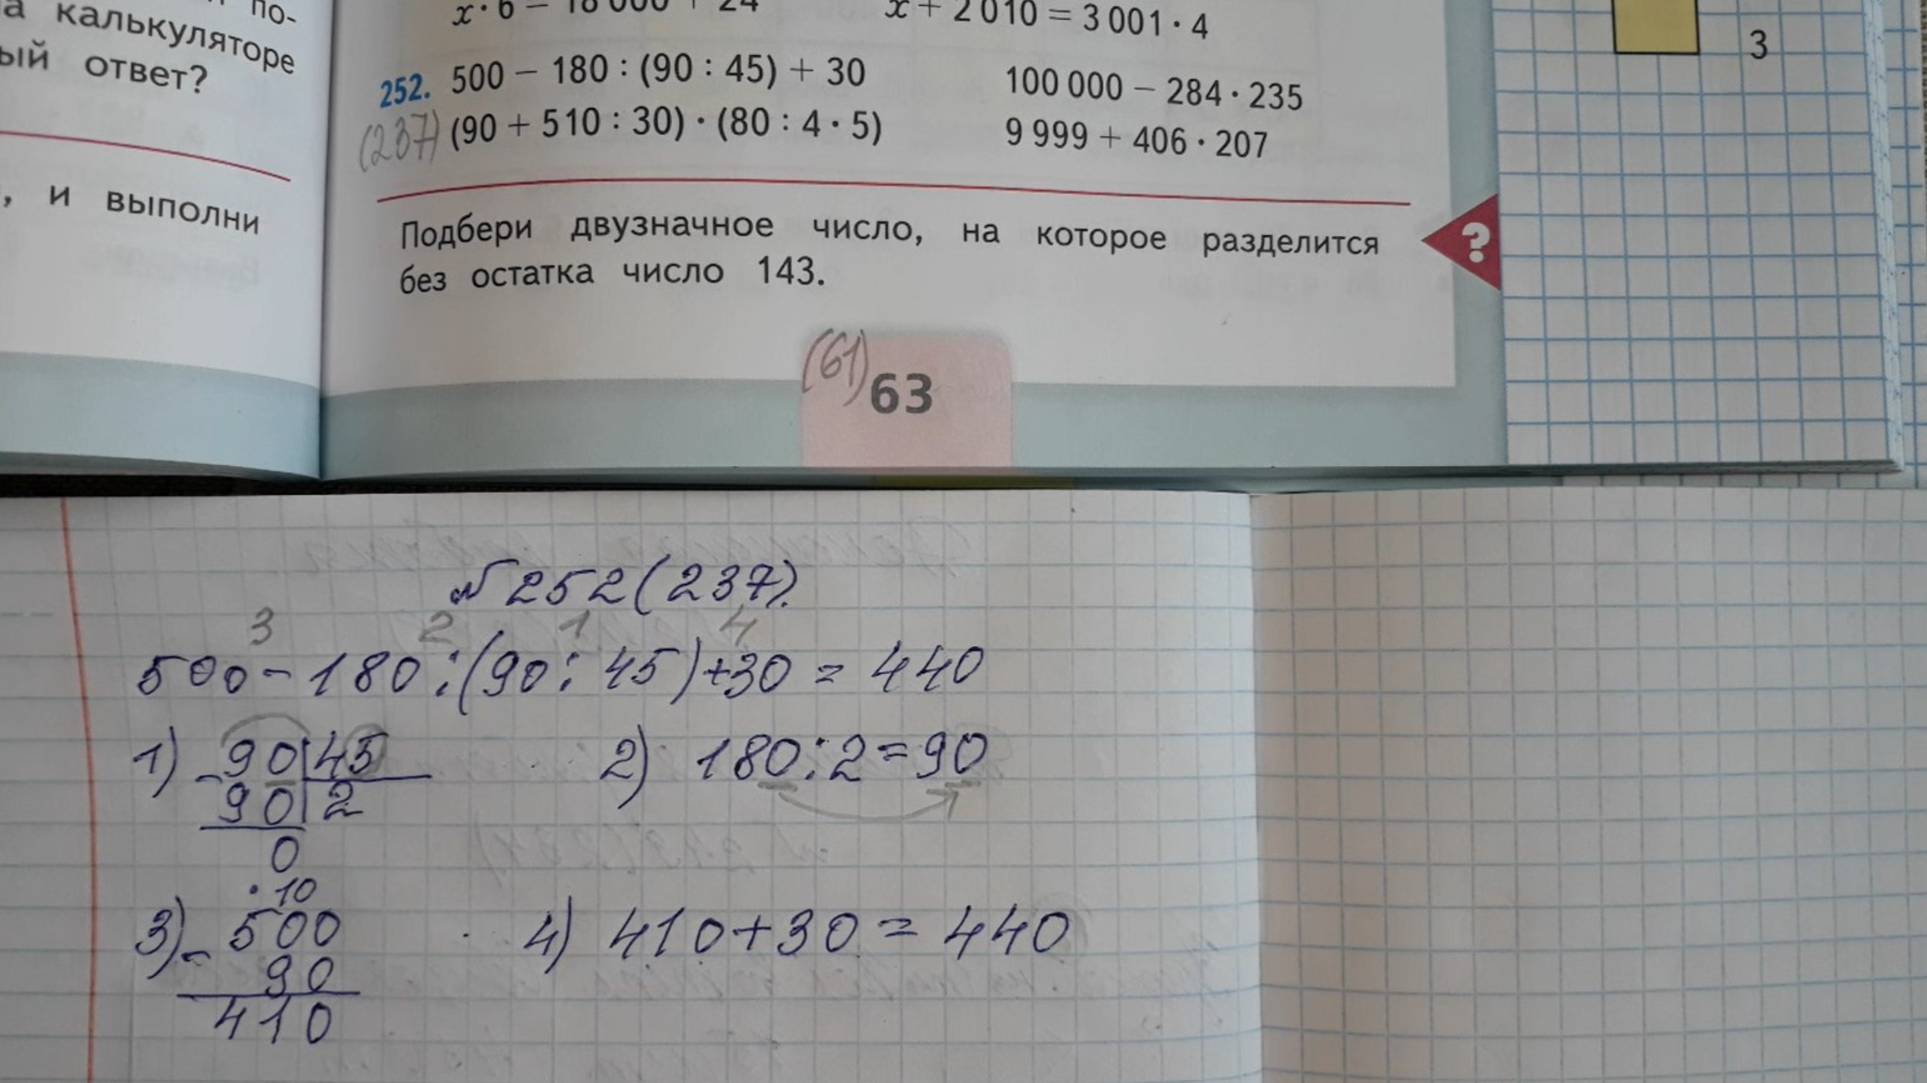 по-
а калькуляторе
ый ответ?
, и выполни
x · 6 = 18 000 + 24
x + 2 010 = 3 001 · 4
252. 500 − 180 : (90 : 45) + 30
100 000 − 284 · 235
(237) (90 + 510 : 30) · (80 : 4 · 5)
9 999 + 406 · 207
Подбери двузначное число, на которое разделится
без остатка число 143.
?
(61) 63
3
№ 252 (237).
3 2 1 4
500 - 180 : (90 : 45) + 30 = 440
1) - 90 | 45
90 | 2
0
2) 180 : 2 = 90
· 10
3) - 500
90
410
4) 410 + 30 = 440